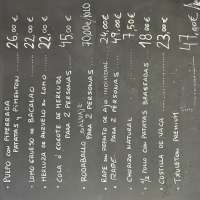 • PULPO CON PIPERRADA
PATATAS Y PIMENTON ..... 26,00 €
• LOMO GRUESO DE BACALAO ..... 22,00 €
• MERLUZA DE ANZUELO EN LOMO ..... 22,00 €
• COLA O COGOTE DE MERLUZA
PARA 2 PERSONAS ..... 45,00 €
• RODABALLO SALVAJE 70,00€/KILO
PARA 2 PERSONAS
• RAPE EN REFRITO DE AJO INDIVIDUAL 24,00€
• RAPE PARA 2 PERSONAS 49,00€
• CHORIZO NATURAL 7,50€
• ½ POLLO CON PATATAS 18,00€
• COSTILLA DE VACA ..... 23,00€
• TXULETON PREMIUM ..... 47,00€